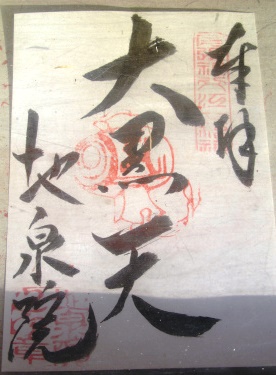 奉拝
大黒天
地泉院